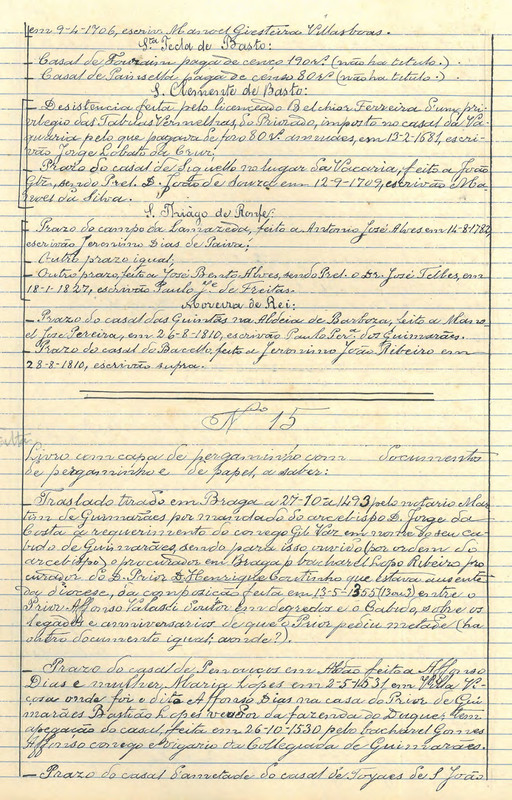 em 9-4-1706, escriv. Manoel Giesteira Villasboas.
Sta Tecla de Basto:
— Casal de Tourain paga de cenço 190 rs. (não ha titulo.)
— Casal de Painsella paga de censo 80 rs. (não ha titulo.)
S. Clemente de Basto:
— Desistencia feita pelo licenceado Belchior Ferreira Puny, pri-
vilegio das Tabuas Vermelhas, do Priorado, imposto no casal da Va-
quaria pelo que pagava de foro 80 rs. annuaes, em 13-2-1681, escri-
vão Jorge Lobato da Cruz;
— Prazo do casal de Siquello no lugar da Vaccaria, feito a João
Glz, sendo Prel. D. João de Souza em 12-9-1709, escrivão Ma-
noel da Silva.
S. Thiago de Ronfe:
— Prazo do campo da Lamazeda, feito a Antonio José Alves em 14-8-1782,
escrivão Jeronimo Dias de Paiva;
— Outro prazo igual;
— Outro prazo, feito a José Bento Alves, sendo Prel. o Dr. José Telles, em
18-1-1827, escrivão Paulo Je de Freitas.
Moreira de Rei:
— Prazo do casal das Quintãs na Aldeia de Barboza, feito a Mano-
el José Pereira, em 26-8-1810, escrivão Paulo Pera dos Guimarães.
— Prazo do casal do Bacello, feito a Jeronimo João Ribeiro em
28-8-1810, escrivão supra.
No 15
Livro com capa de pergaminho com documentos
de pergaminho e de papel, a saber:
— Traslado tirado em Braga a 27-10-1493 pelo notario Mar-
tim de Guimarães por mandado do arcebispo D. Jorge da
Costa a requerimento do conego Gil Vaz em nome do seu ca-
bido de Guimarães, sendo para isso ouvido (por ordem do
arcebispo) o procurador em Braga o bacharel Lopo Ribeiro, pro-
curador do D. Prior D. Henrique Coutinho que estava ausente
da diocese, da composição feita em 13-5-1355 (13 ou 3) entre o
Prior Affonso Valasci doutor em degredos e o Cabido, sobre os
legados e anniversarios de que o Prior pediu metade (ha
outro documento igual; aonde?).
— Prazo do casal de Penouços em Atão feito a Affonso
Dias e mulher Maria Lopes em 2-5-1531 em Villa Vi-
çosa onde foi o dito Affonso Dias na casa do Prior de Gui-
marães Bastião Lopes veador da fazenda do Duque; tem
apegação do casal, feita em 26-10-1530 pelo bacharel Gomes
Affonso conego e vigario da Collegiada de Guimarães.
— Prazo do casal da metade do casal de Soyaes de S. João